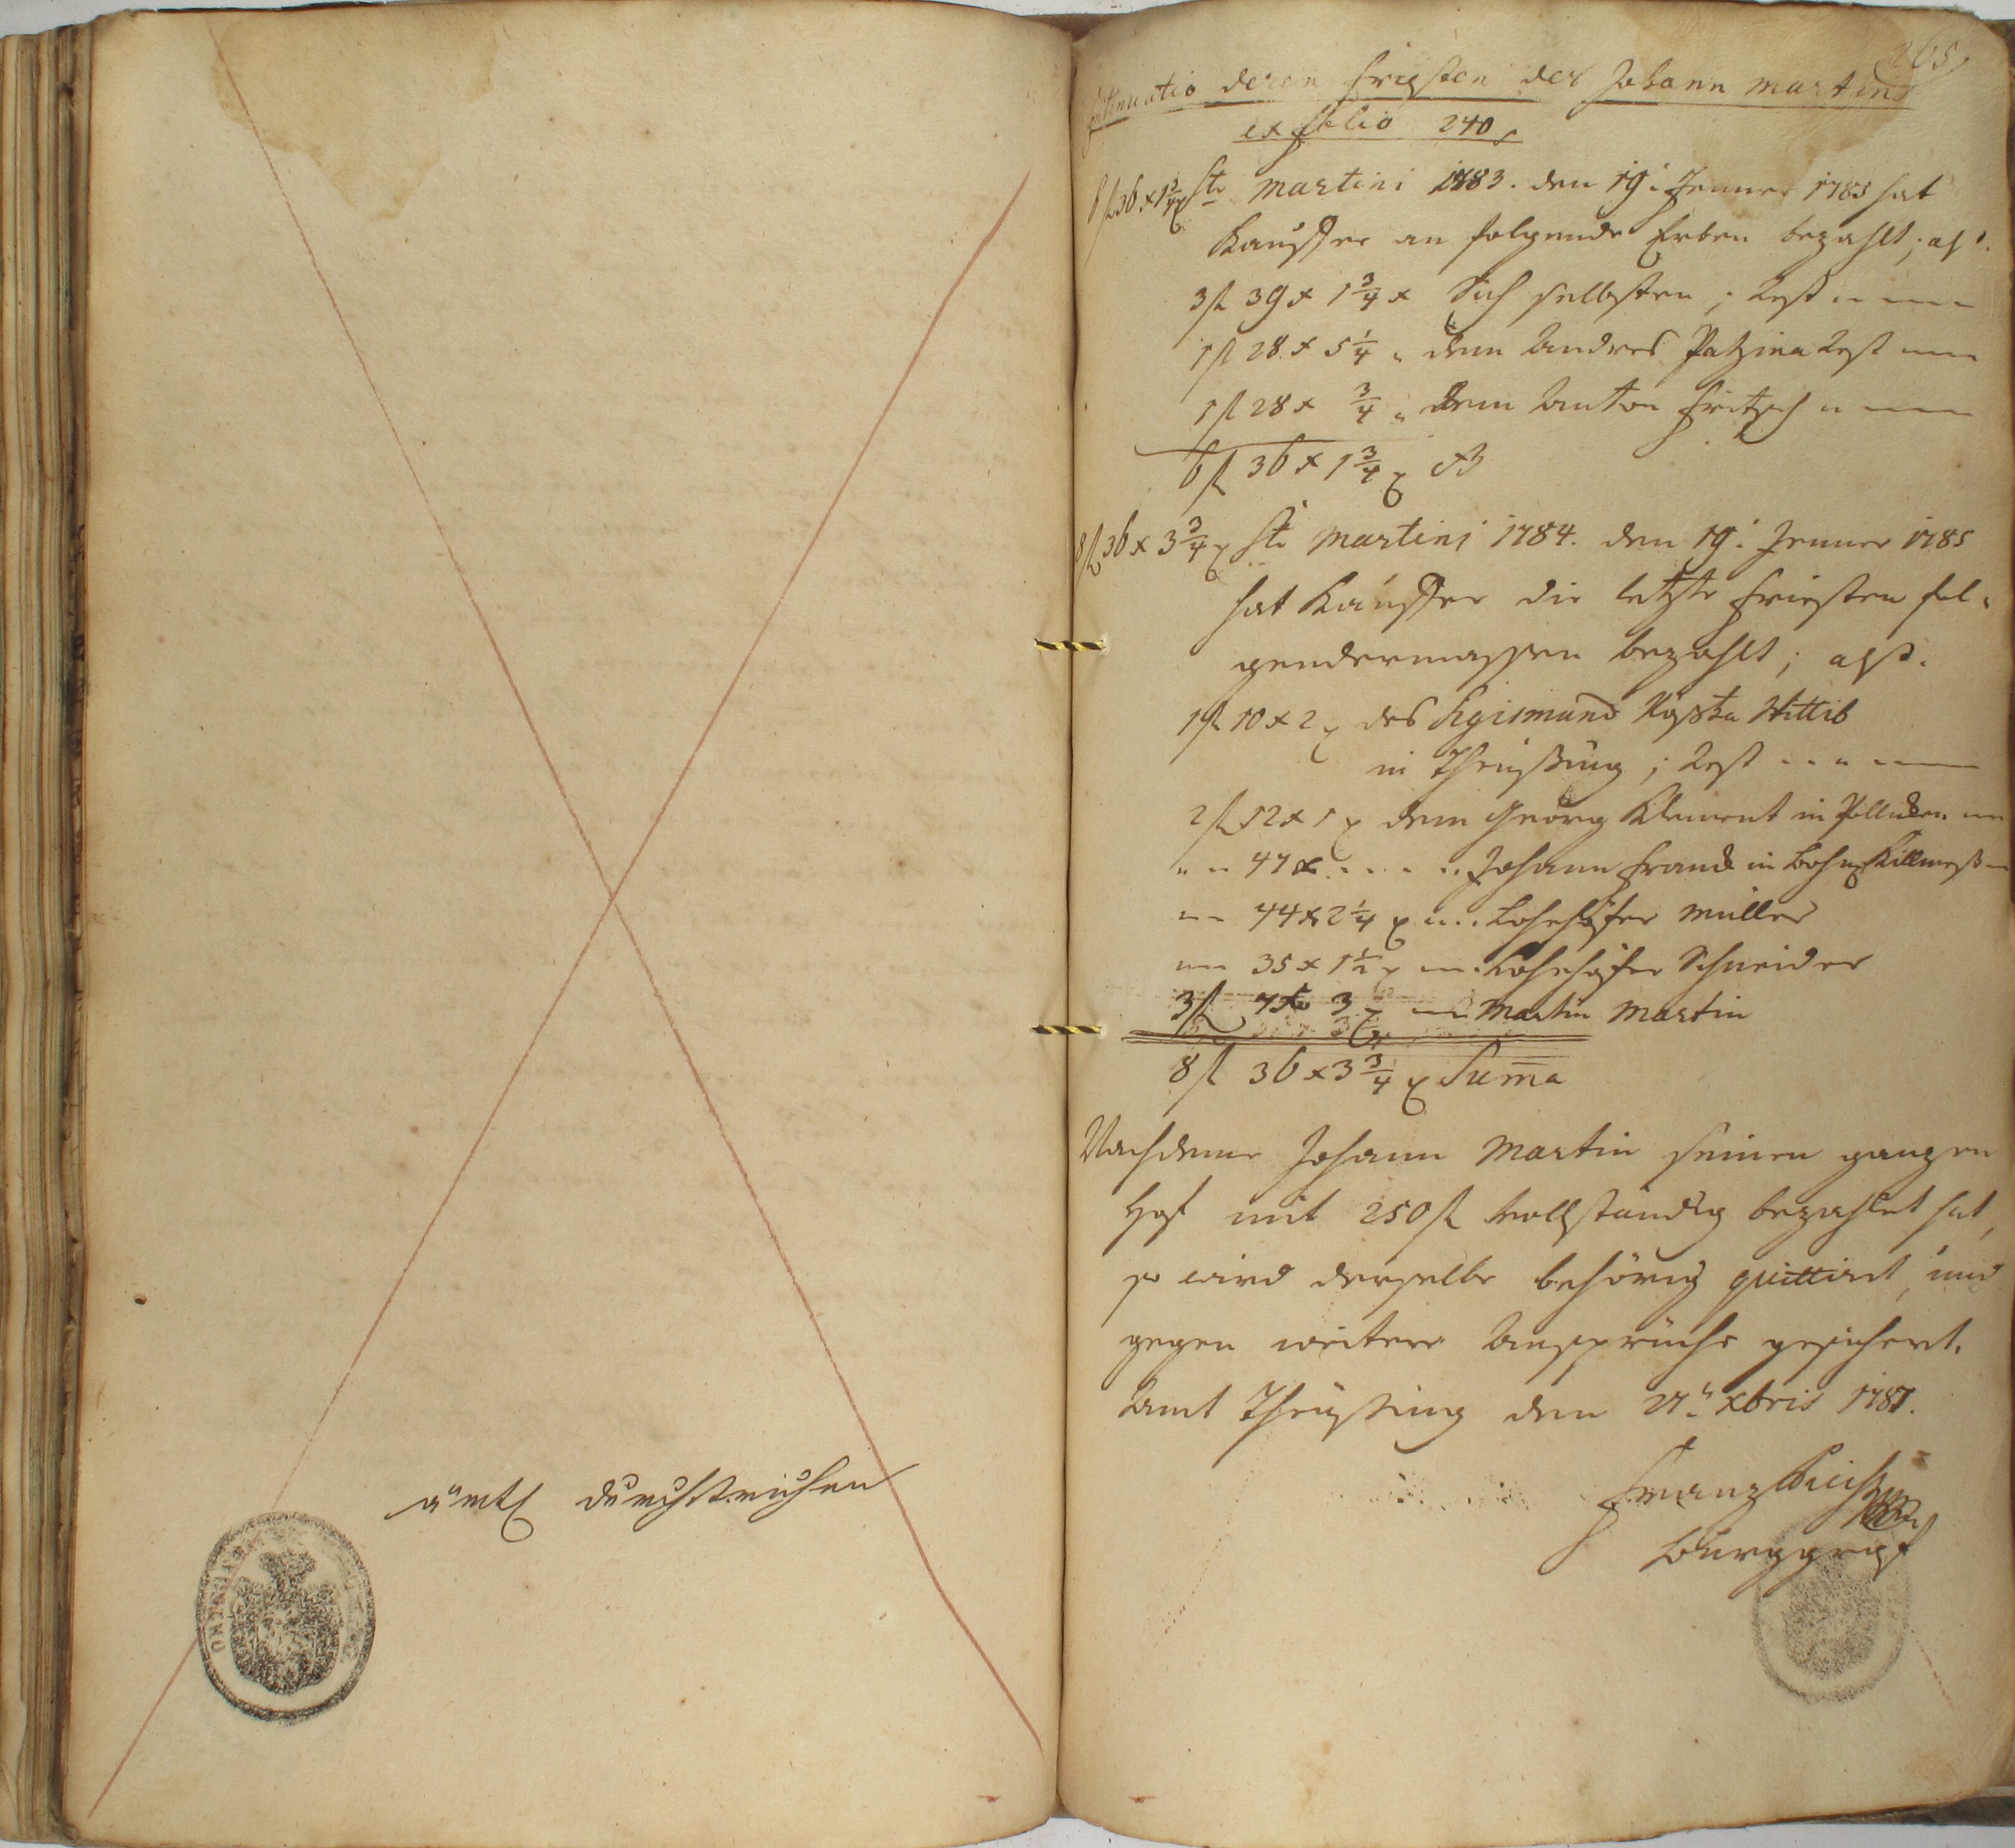 ämtl durchstrichen
265
Continuatio deren Friesten des Johann Martins
ex folio 240
6 fl 36 x 1 3/4 ₰ ste Martini 1783. den 19: Jenner 1785 hat
Kauffer an folgende Erben bezahlt; alß.
3 fl 39 x 1 3/4 x Sich selbsten; Rest
1 fl 28 x 5 1/4 " dem Andres Patzina Rest
1 fl 28 x 3/4 " dem Anton Fritsch
6 fl 36 x 1 3/4 ₰
8 fl 36 x 3 3/4 ₰ ste Martini 1784. den 19: Jenner 1785
hat Kauffer die letzte Friesten fol-
gendermassen bezahlt; alß.
1 fl 10 x 2 ₰ des Sigismund Wittib
in Theußing; Rest
2 fl 12 x 1 ₰ dem Georg Klement in
" " 47 x Johann Frank in
" " 44 x 2 1/4 ₰ Müller
" " 35 x 1 1/2 ₰ Schneider
3 fl 7 x 3 ₰ Martin Martin
8 fl 36 x 3 3/4 ₰ Suma
Nachdeme Johann Martin seinen ganzen
Hof mit 250 fl vollständig bezahlet hat,
so wird derselbe behörig quittirt, und
gegen weitere Ansprüche gesichert.
Amt Theußing den 27: xbris 1787.
Franz
Burggraf